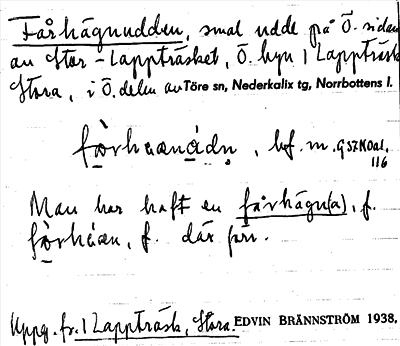 Fårhägnudden, smal udde på Ö. sidan
av Stor-Lappträsket, Ö. byn i Lappträsk
Stora, i Ö. delen av Töre sn, Nederkalix tg, Norrbottens l.
bf. m. GSZKOal.
116
Man har haft en fårhägn(a), f.
där förr.
Uppg. fr. i Lappträsk, Stora. EDVIN BRÄNNSTRÖM 1938.